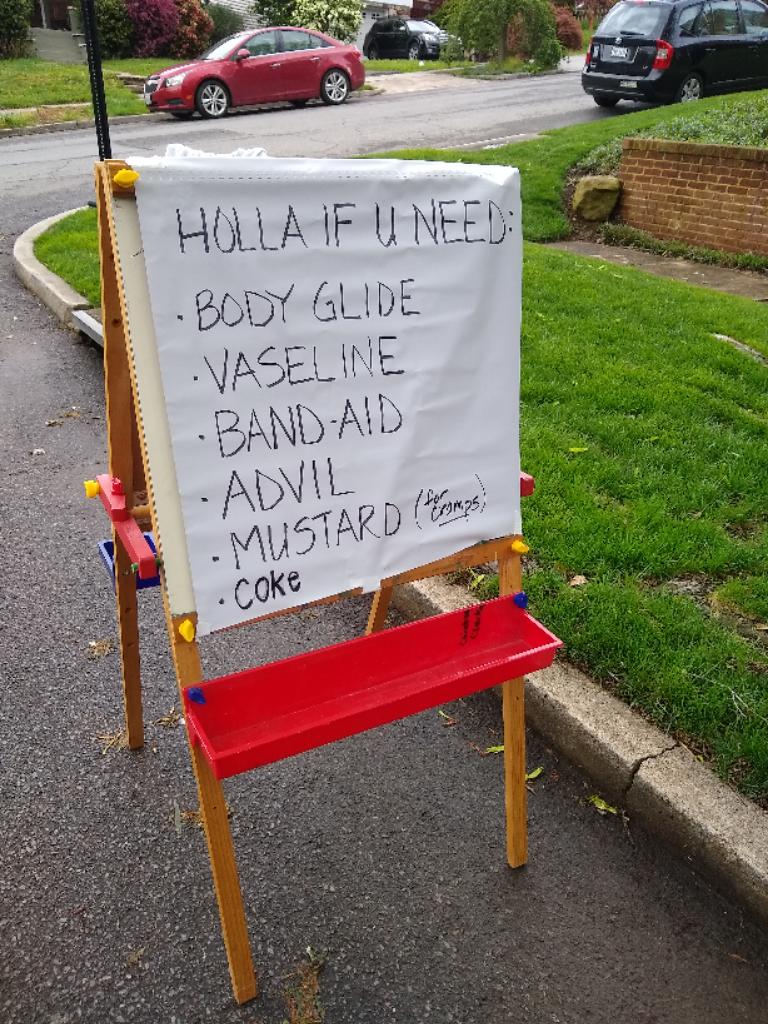 HOLLA IF U NEED:
· BODY GLIDE
· VASELINE
· BAND-AID
· ADVIL
· MUSTARD (for cramps)
· COKE